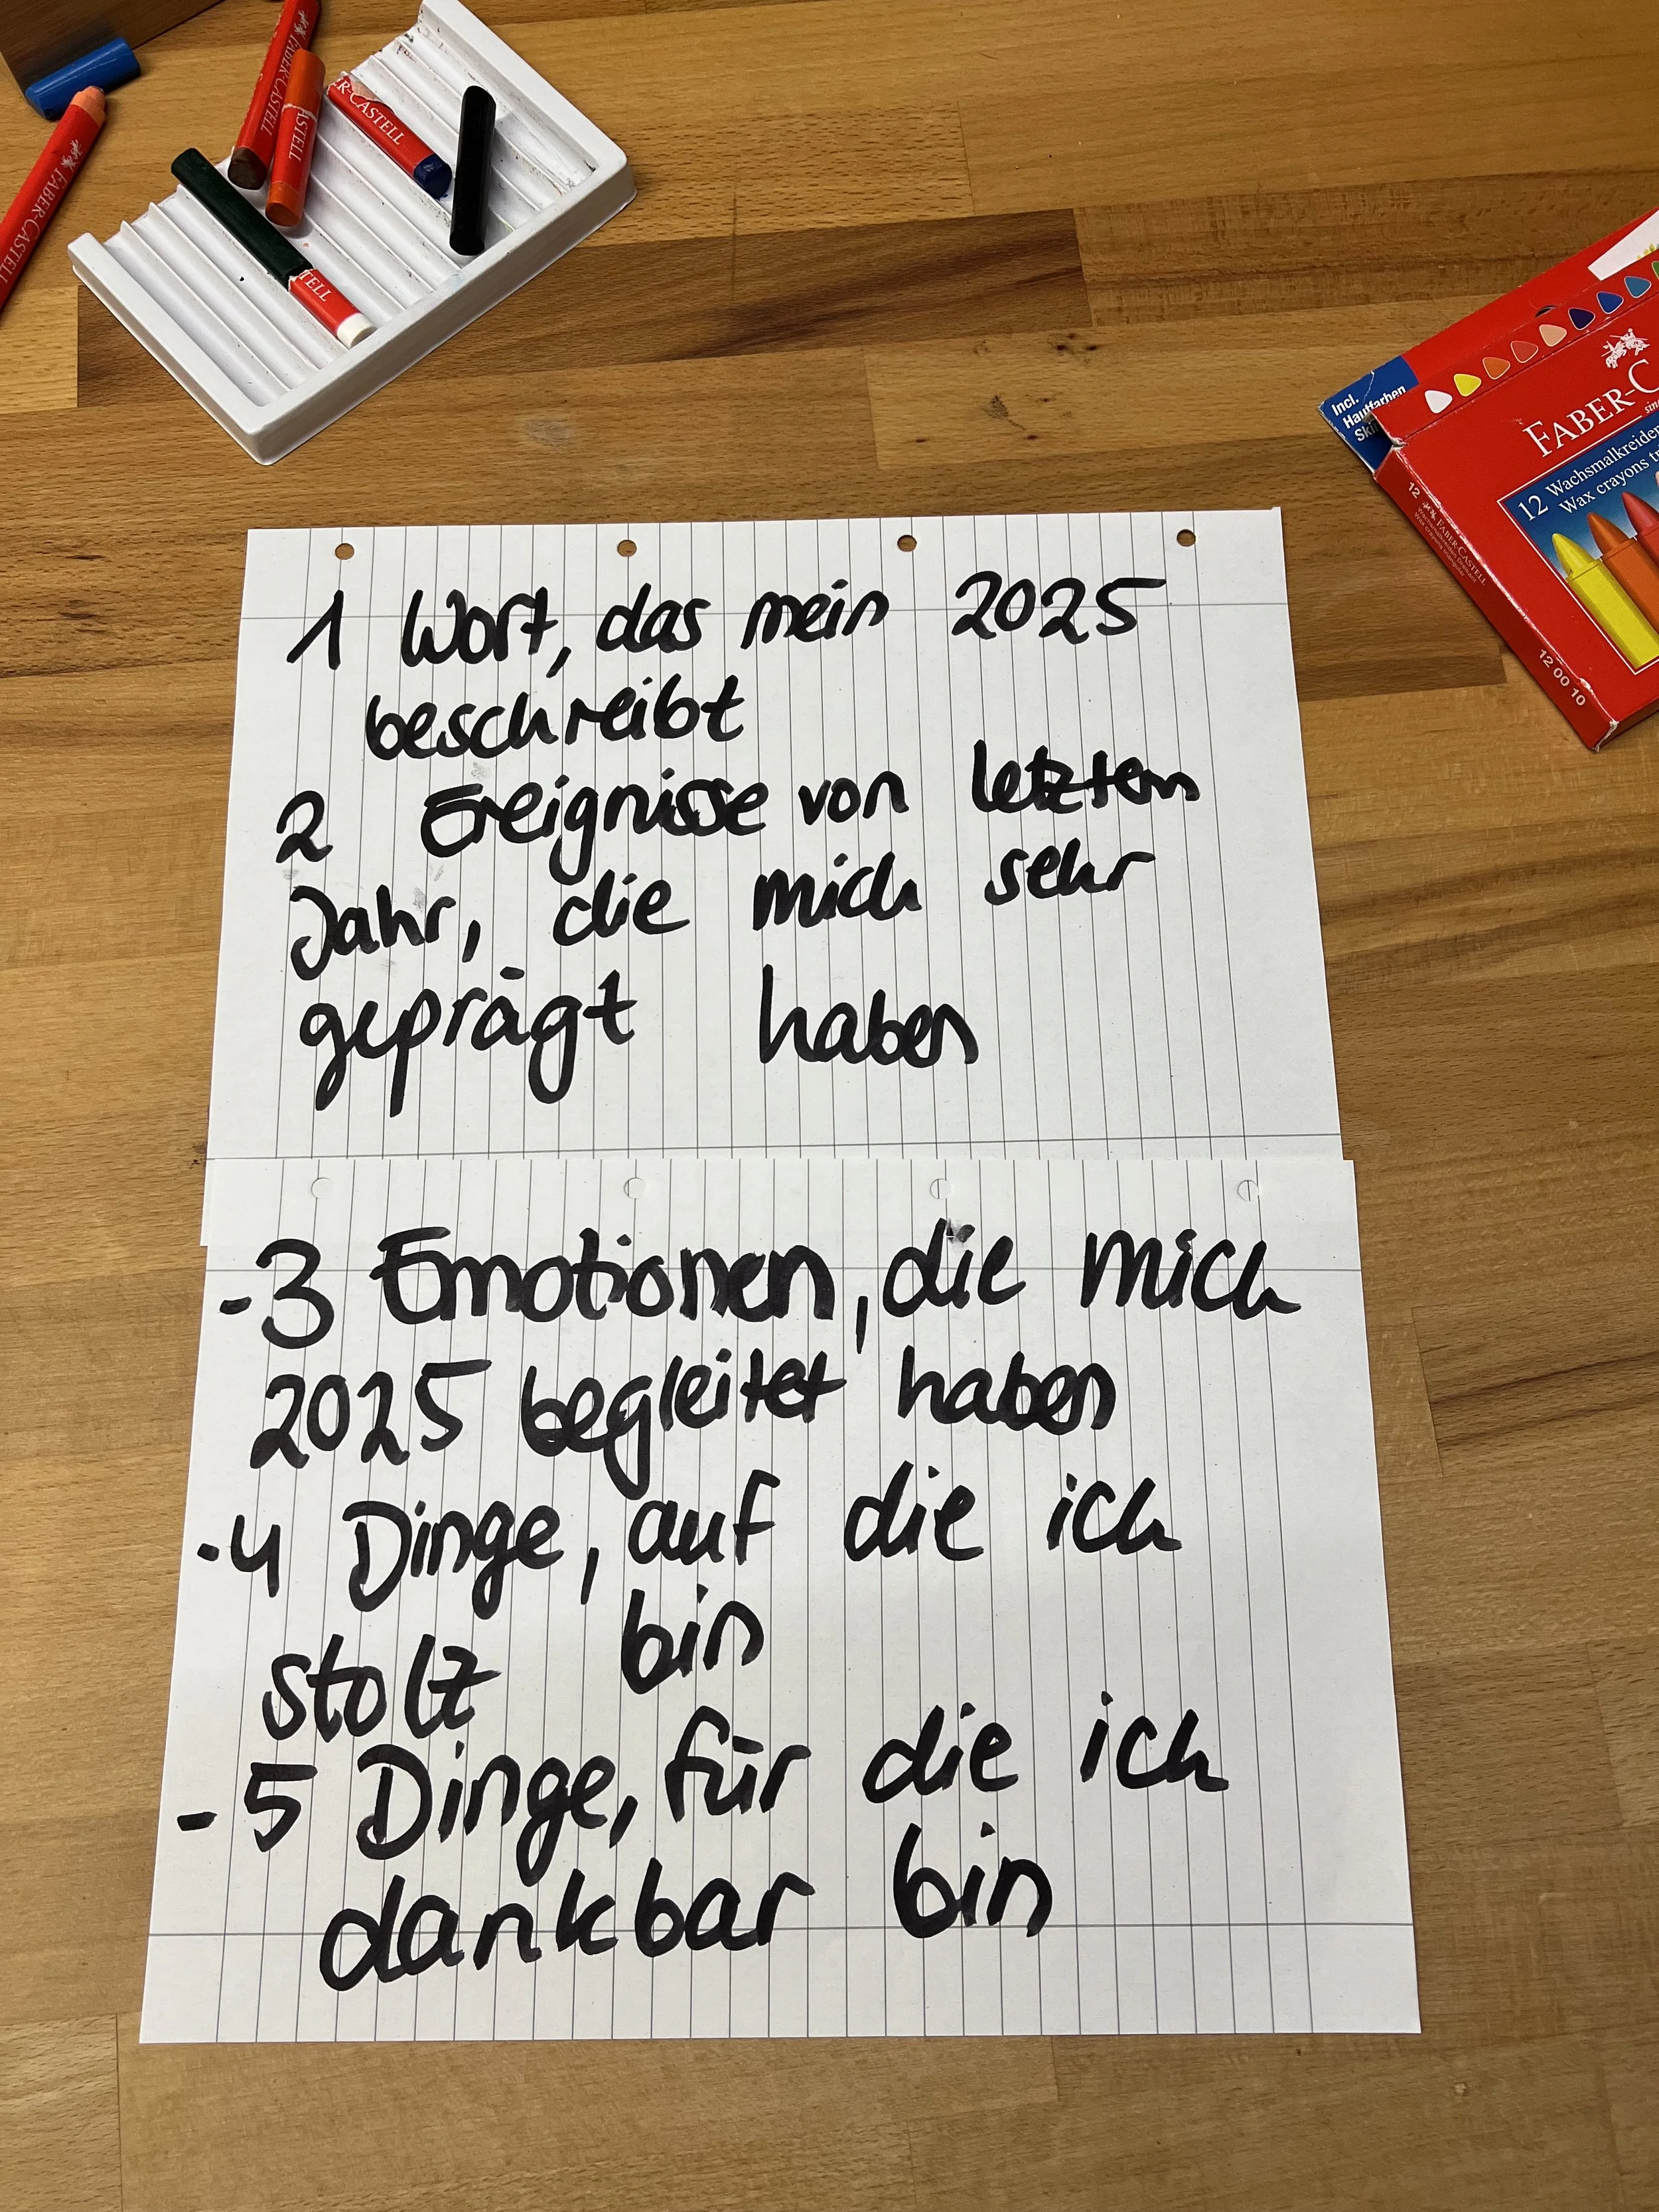 FABER-CASTELL
FABER-CASTELL
ASTELL
R-CASTELL
TELL
Incl.
Hautfarben
FABER-C
12 Wachsmalkreiden
Wax crayons
12 FABER-CASTELL
12 00 10
1 Wort, das mein 2025
beschreibt
2 Ereignisse von letztem
Jahr, die mich sehr
geprägt haben
-3 Emotionen, die mich
2025 begleitet haben
-4 Dinge, auf die ich
stolz bin
-5 Dinge, für die ich
dankbar bin